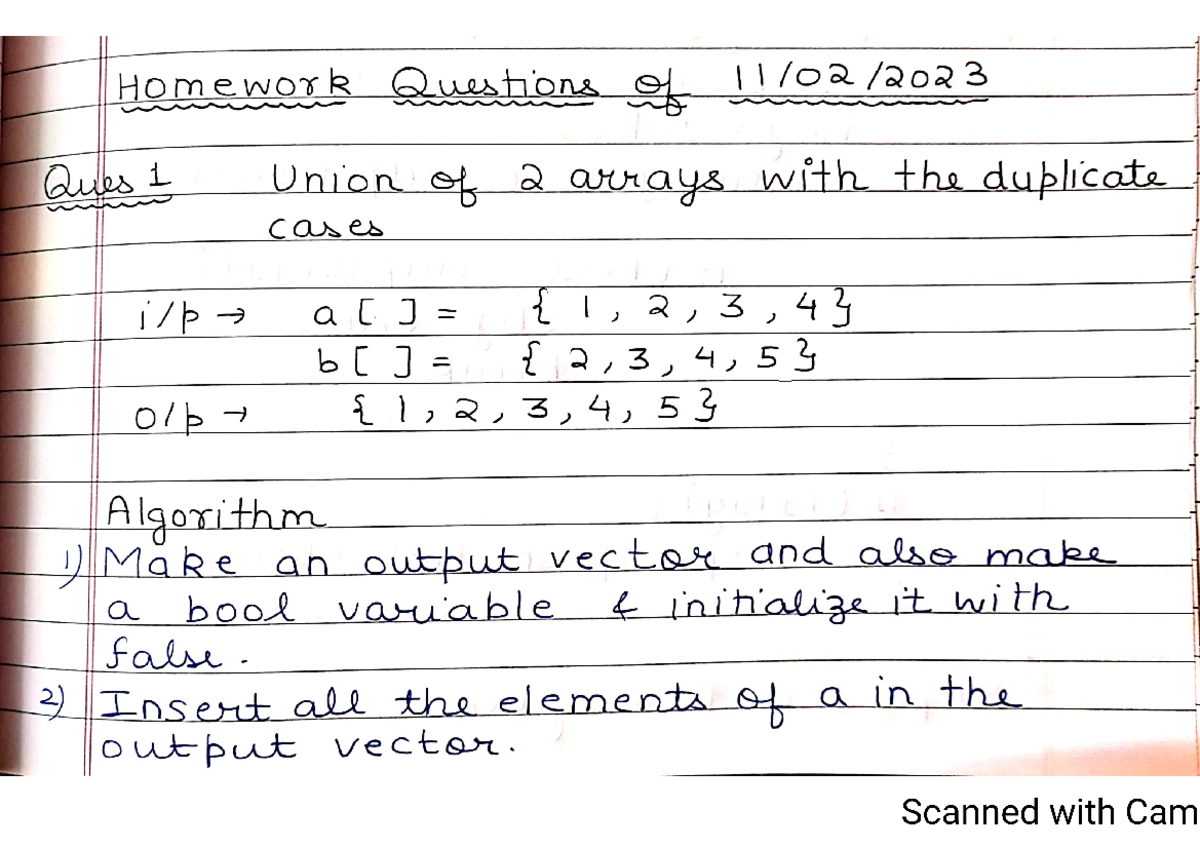 Homework Questions of 11/02/2023
Ques 1 Union of 2 arrays with the duplicate
cases
i/p → a [ ] = { 1 , 2 , 3 , 4 }
b [ ] = { 2 , 3 , 4 , 5 }
o/p → { 1 , 2 , 3 , 4 , 5 }
Algorithm
1) Make an output vector and also make
a bool variable & initialize it with
false.
2) Insert all the elements of a in the
output vector.
Scanned with Cam